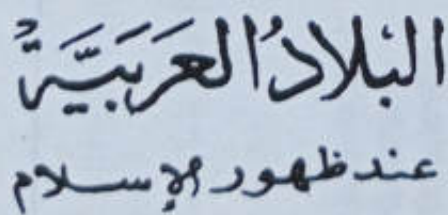 البلادُ العَرَبيَّةُ
عند ظهور الإسلام